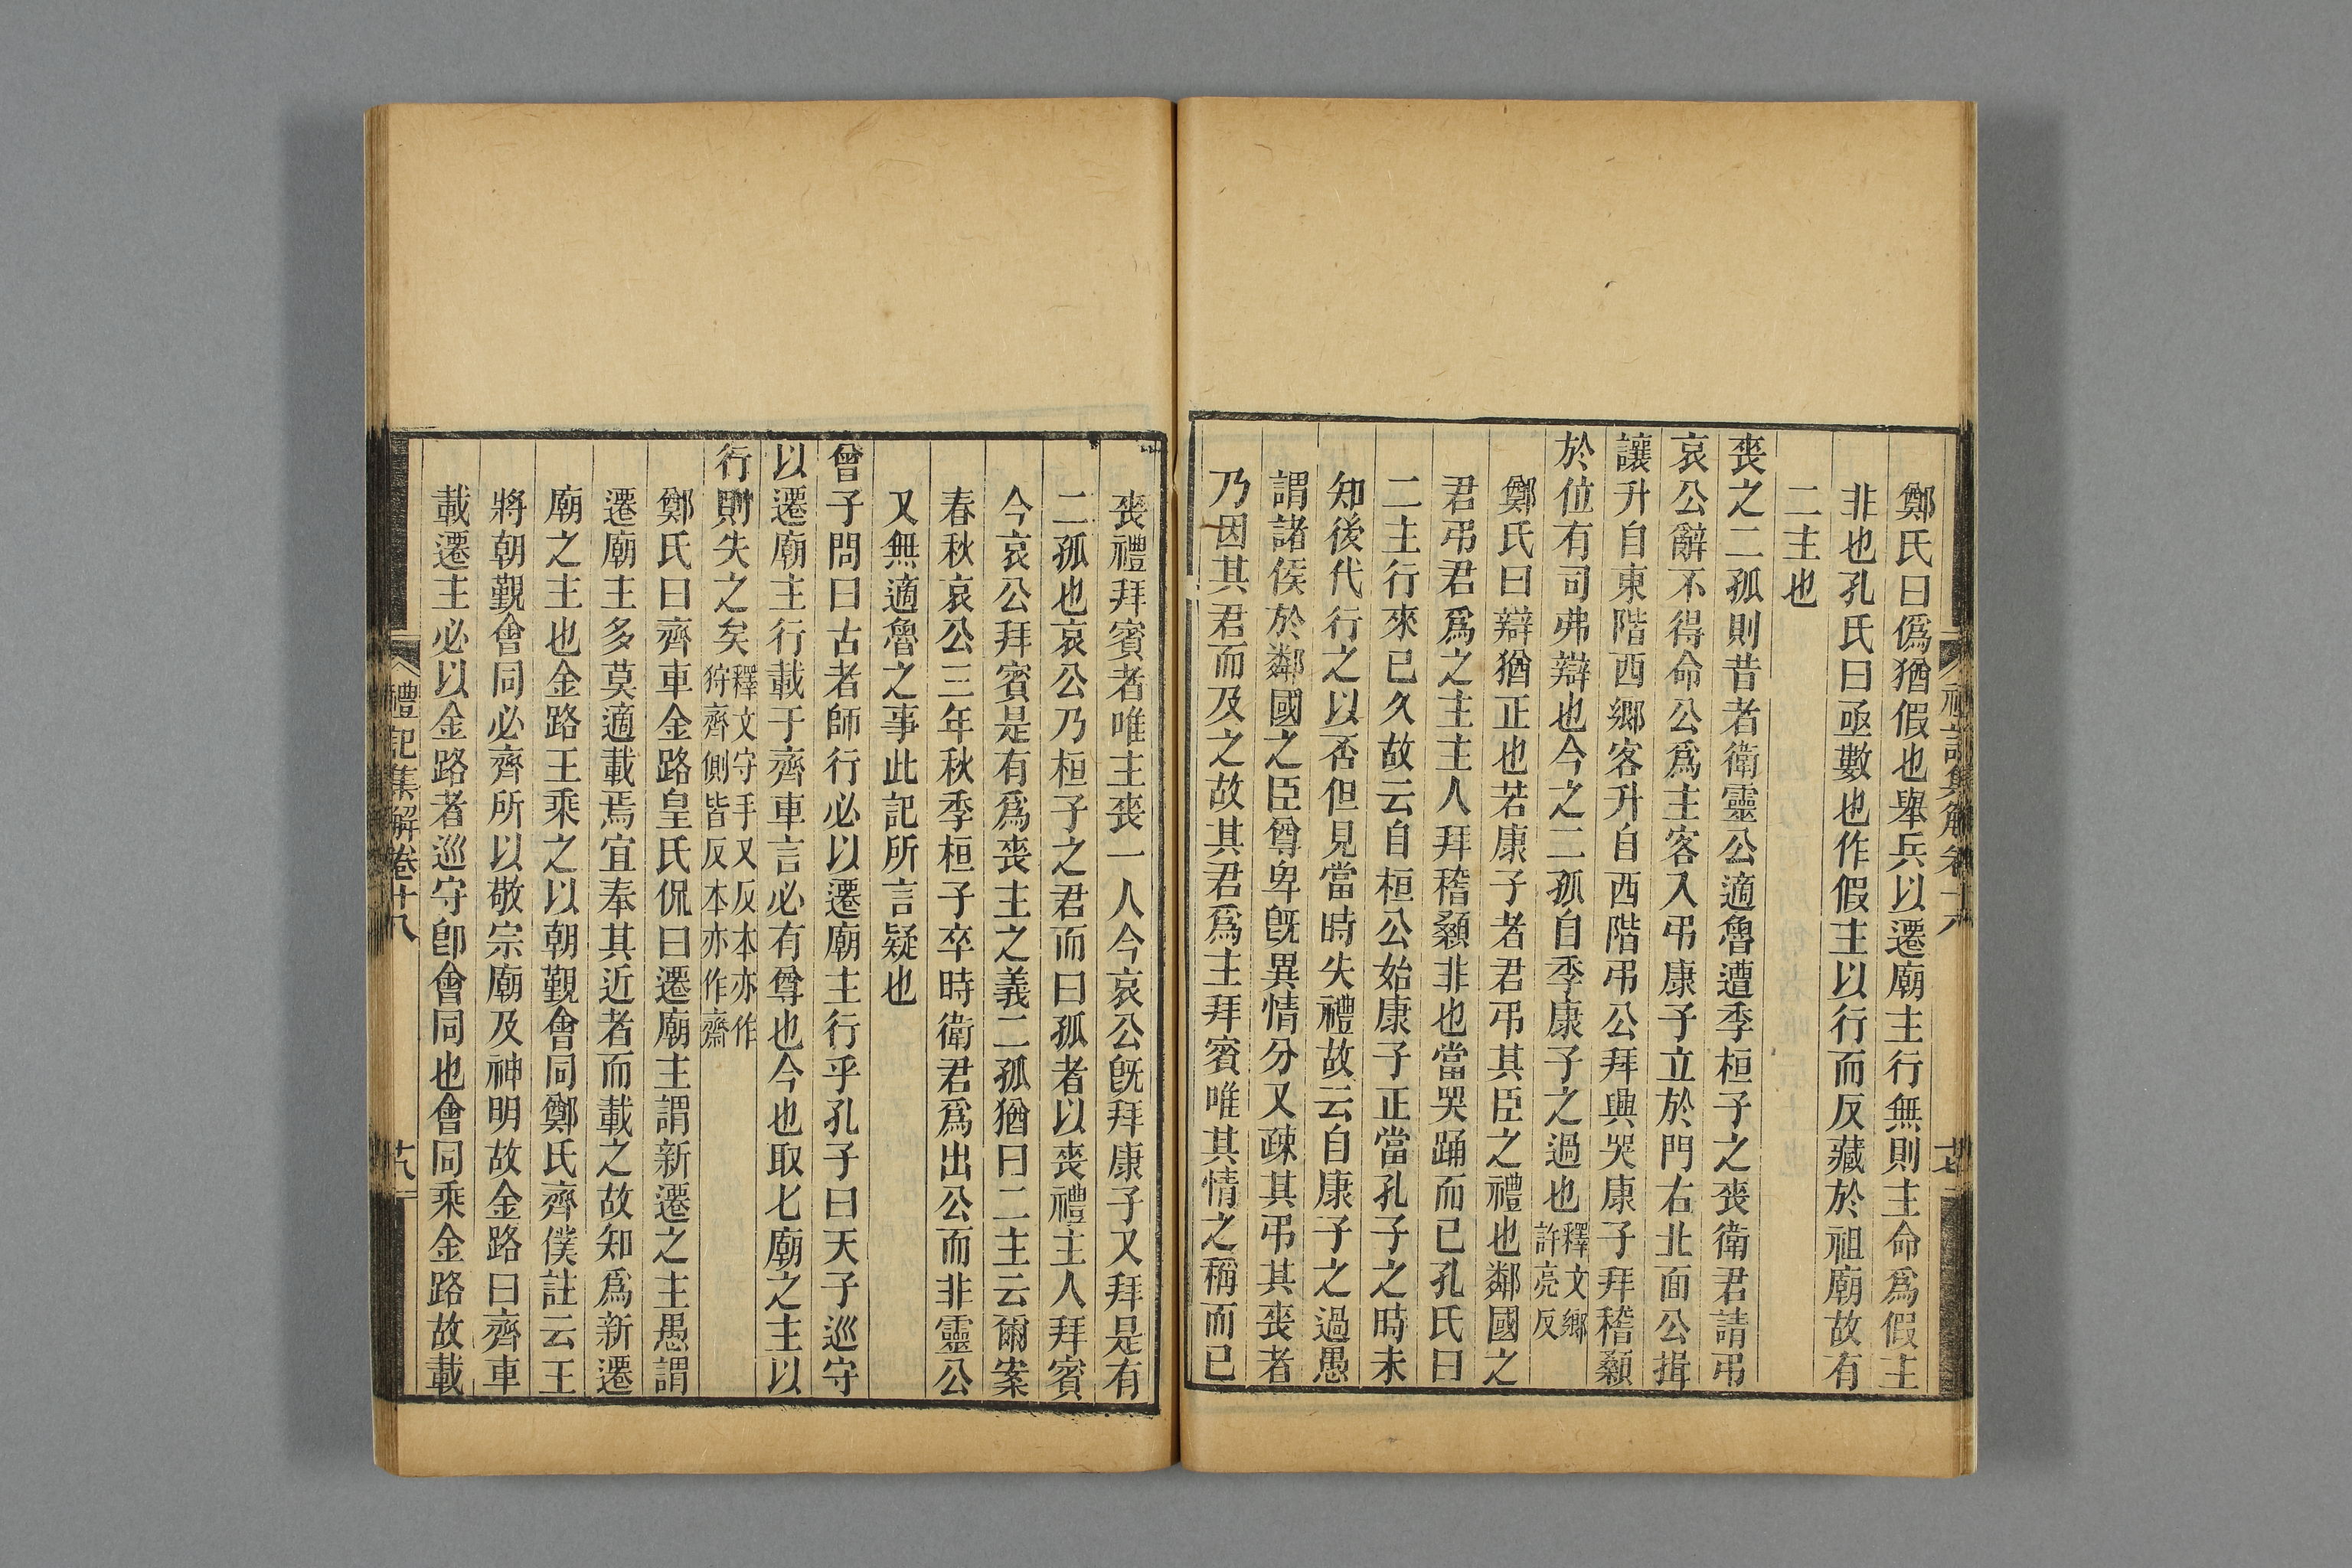 鄭氏曰僞猶假也舉兵以遷廟主行無則主命爲假主
非也孔氏曰亟數也作假主以行而反藏於祖廟故有
二主也
喪之二孤則昔者衛靈公適魯遭季桓子之喪衛君請弔
哀公辭不得命公爲主客入弔康子立於門右北面公揖
讓升自東階西鄉客升自西階弔公拜興哭康子拜稽顙
於位有司弗辯也今之二孤自季康子之過也釋文鄉許亮反
鄭氏曰辯猶正也若康子者君弔其臣之禮也鄰國之
君弔君爲之主主人拜稽顙非也當哭踊而已孔氏曰
二主行來已久故云自桓公始康子正當孔子之時未
知後代行之以否但見當時失禮故云自康子之過愚
謂諸侯於鄰國之臣尊卑旣異情分又疎其弔其喪者
乃因其君而及之故其君爲主拜賓唯其情之稱而已
喪禮拜賓者唯主喪一人今哀公旣拜康子又拜是有
二孤也哀公乃桓子之君而曰孤者以喪禮主人拜賓
今哀公拜賓是有爲喪主之義二孤猶曰二主云爾案
春秋哀公三年秋季桓子卒時衛君爲出公而非靈公
又無適魯之事此記所言疑也
曾子問曰古者師行必以遷廟主行乎孔子曰天子巡守
以遷廟主行載于齊車言必有尊也今也取七廟之主以
行則失之矣釋文守手又反本亦作狩齊側皆反本亦作齋
鄭氏曰齊車金路皇氏侃曰遷廟主謂新遷之主愚謂
遷廟主多莫適載焉宜奉其近者而載之故知爲新遷
廟之主也金路王乘之以朝覲會同鄭氏齊僕註云王
將朝覲會同必齊所以敬宗廟及神明故金路曰齊車
載遷主必以金路者巡守卽會同也會同乘金路故載
禮記集解卷十八
廿八